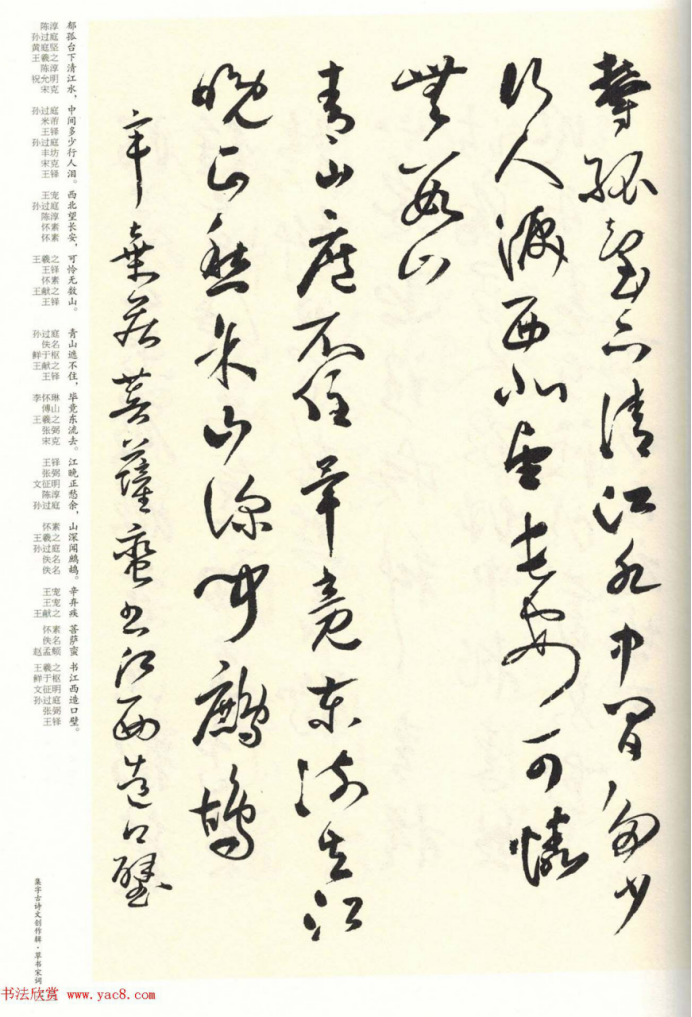 鬱孤臺下清江水中間多少
行人淚西北望長安可憐
無數山
青山遮不住畢竟東流去江
晚正愁余山深聞鷓鴣
辛棄疾菩薩蠻書江西造口壁
郁孤台下清江水，中间多少行人泪。西北望长安，可怜无数山。青山遮不住，毕竟东流去。江晚正愁余，山深闻鹧鸪。辛弃疾 菩萨蛮 书江西造口壁。
陈淳
孙过庭
黄庭坚
王羲之
陈淳
祝允明
宋克
孙过庭
米芾
王铎
孙过庭
丰坊
宋克
王铎
王宠
孙过庭
陈淳
怀素
怀素
王羲之
王铎
怀素
王献之
王铎
孙过庭
佚名
鲜于枢
王献之
王铎
李怀琳
傅山
王羲之
张弼
宋克
王铎
张弼
文征明
陈淳
孙过庭
怀素
王羲之
孙过庭
佚名
佚名
王宠
王宠
王献之
怀素
佚名
赵孟頫
王羲之
鲜于枢
文征明
孙过庭
张弼
王铎
集字古诗文创作辑·草书宋词
书法欣赏 www.yac8.com